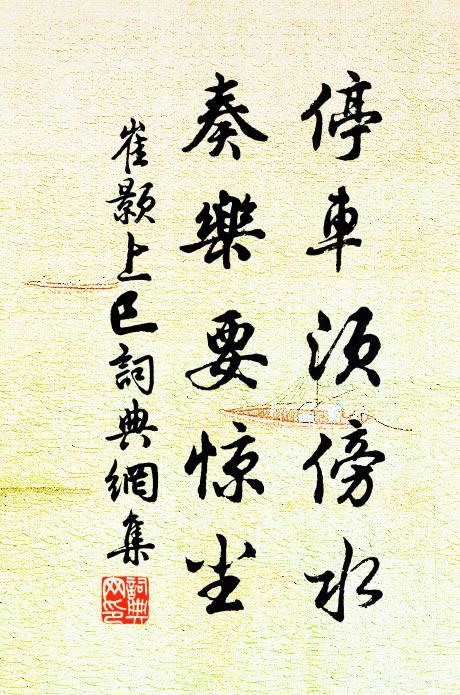 停車須傍水
奏樂要惊尘
崔顥上巳詞典網集
詞典
网印